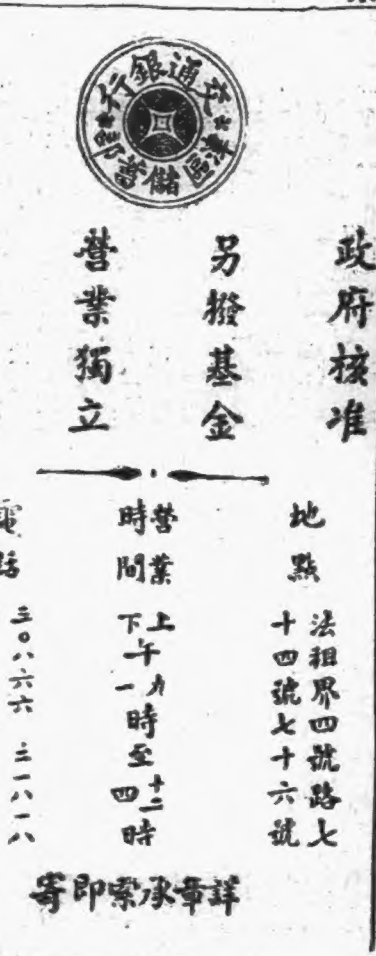 交通銀行
津區儲蓄部
政府核准
另撥基金
營業獨立
地點
法租界四號路七
十四號七十六號
營業時間
上午九時至十二時
下午一時至四時
電話
三〇八六六 三一八一八
詳章承索即寄